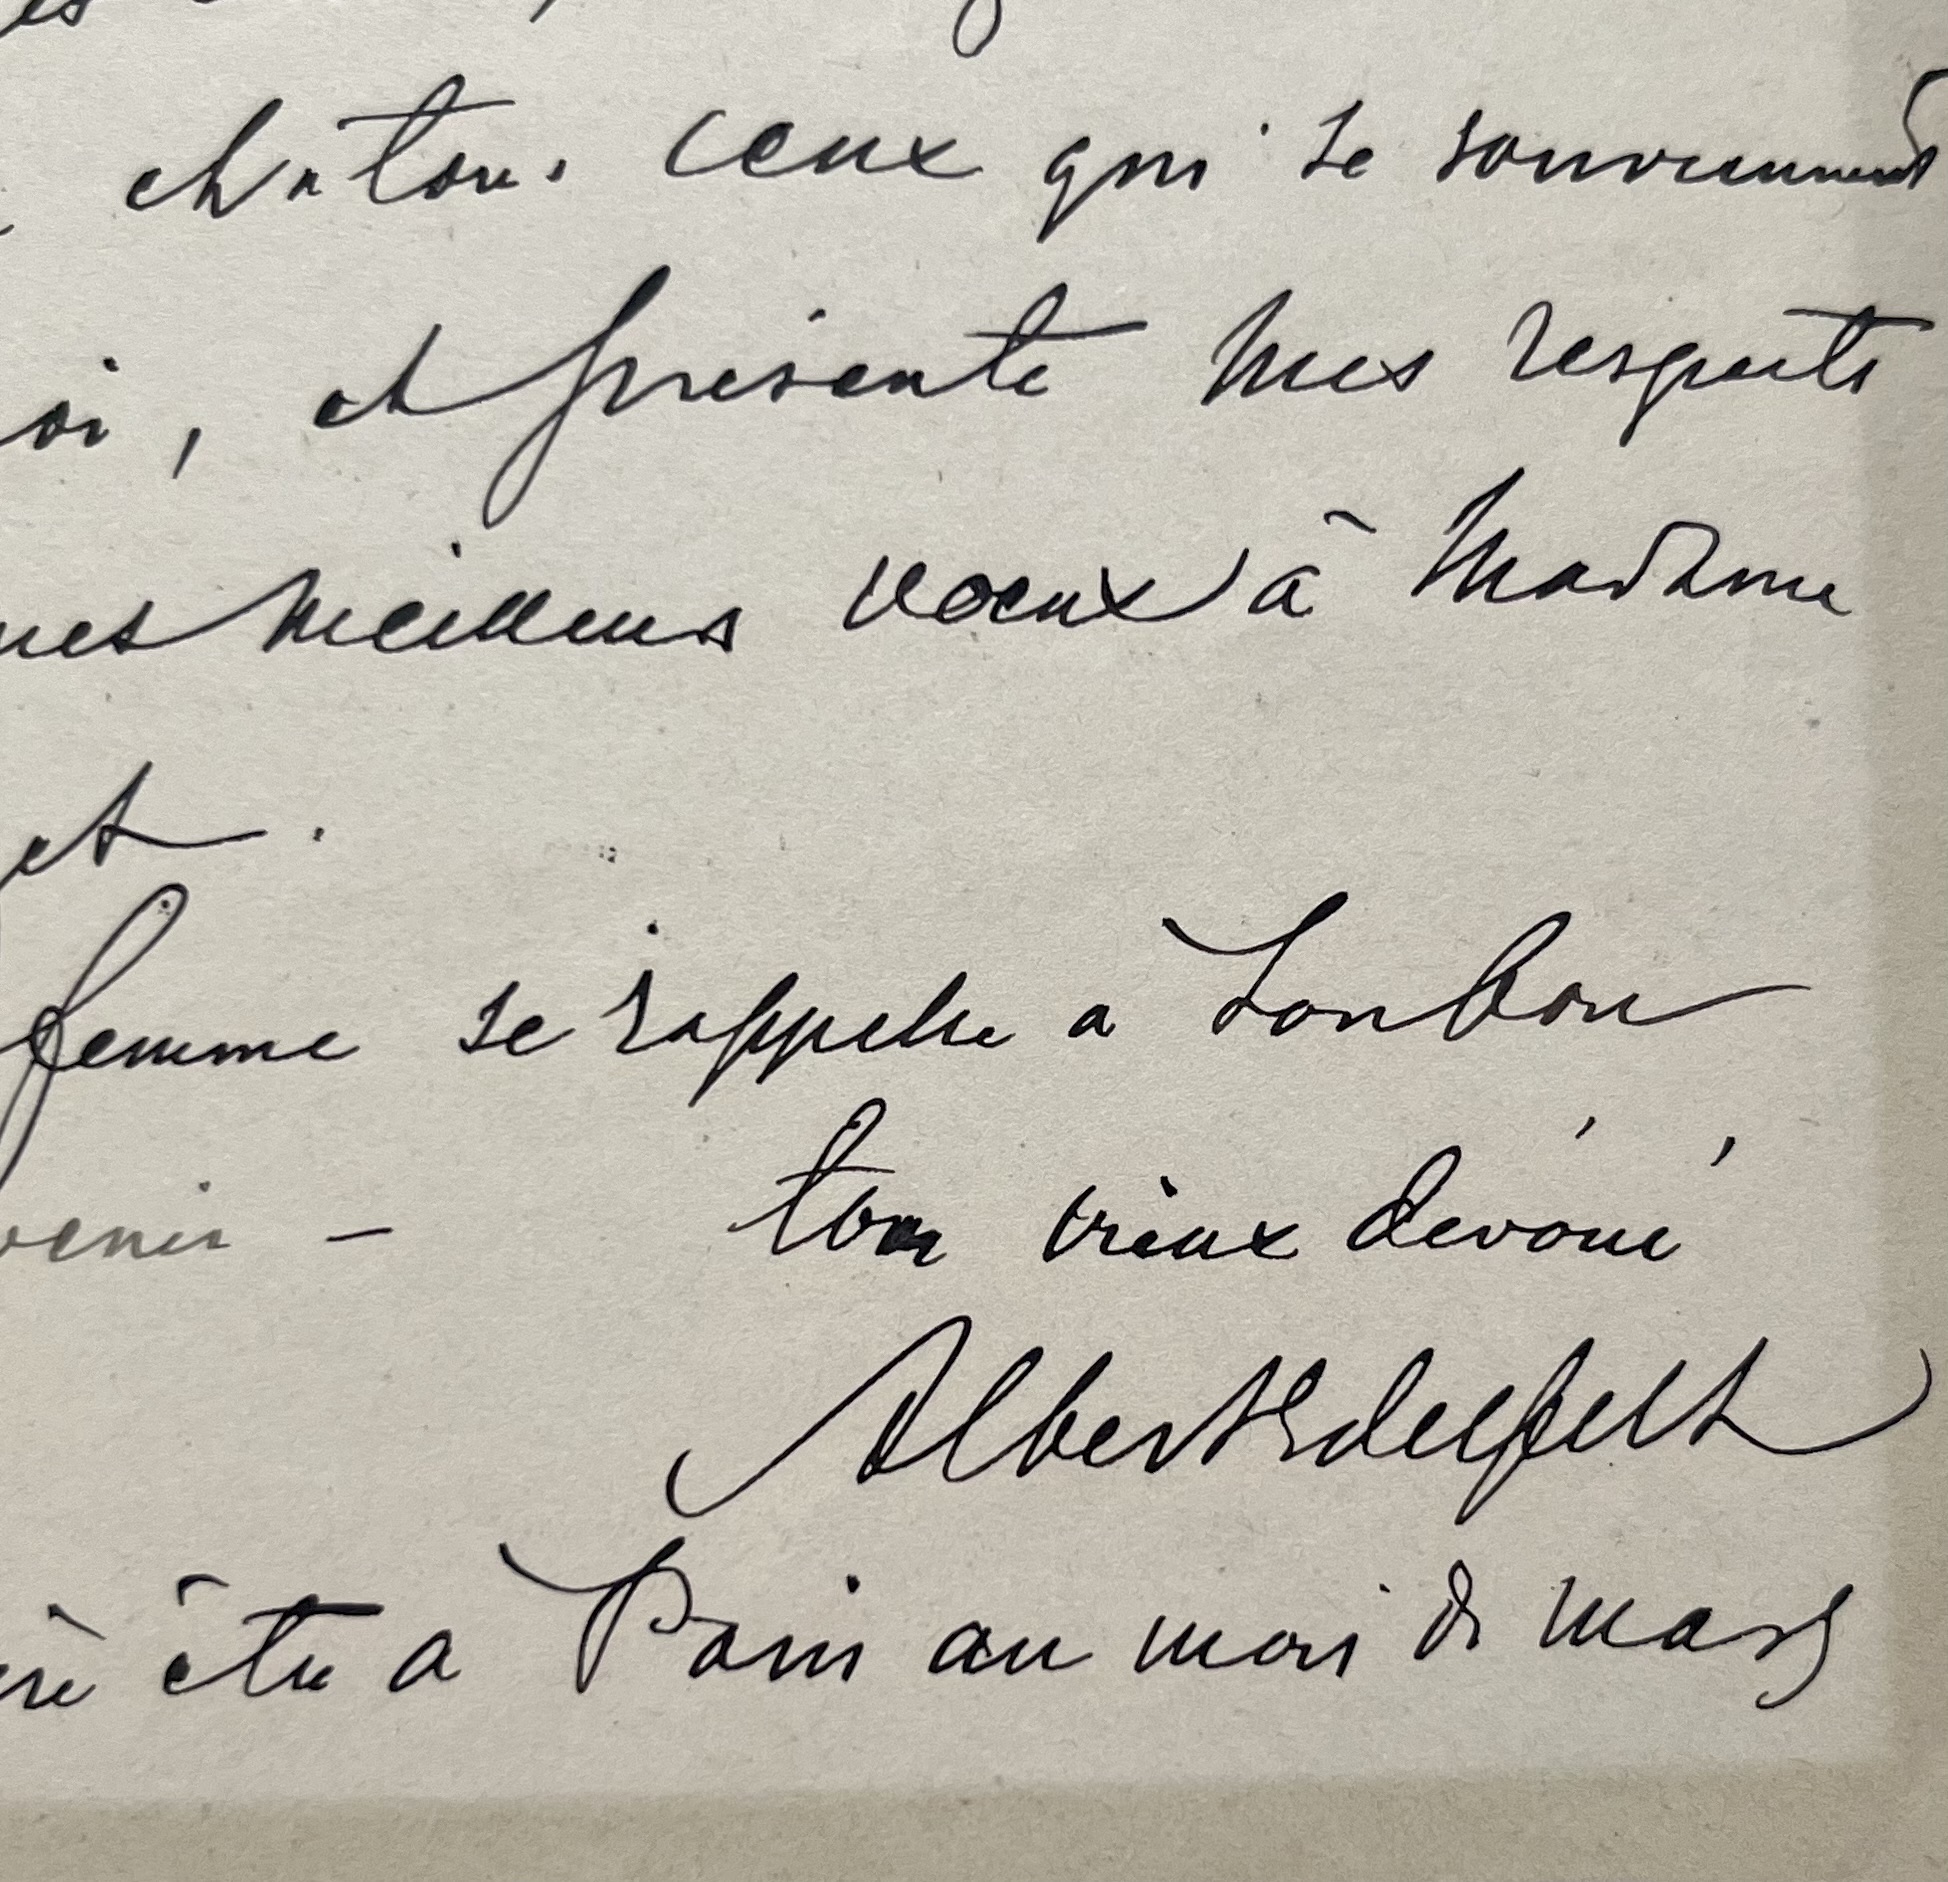 et à tous ceux qui se souviennent
oi, et présente mes respects
mes meilleurs voeux à Madame
et.
femme se rappelle à ton bon
venir - ton vieux dévoué
Albert Edelfelt
être à Paris au mois de mars